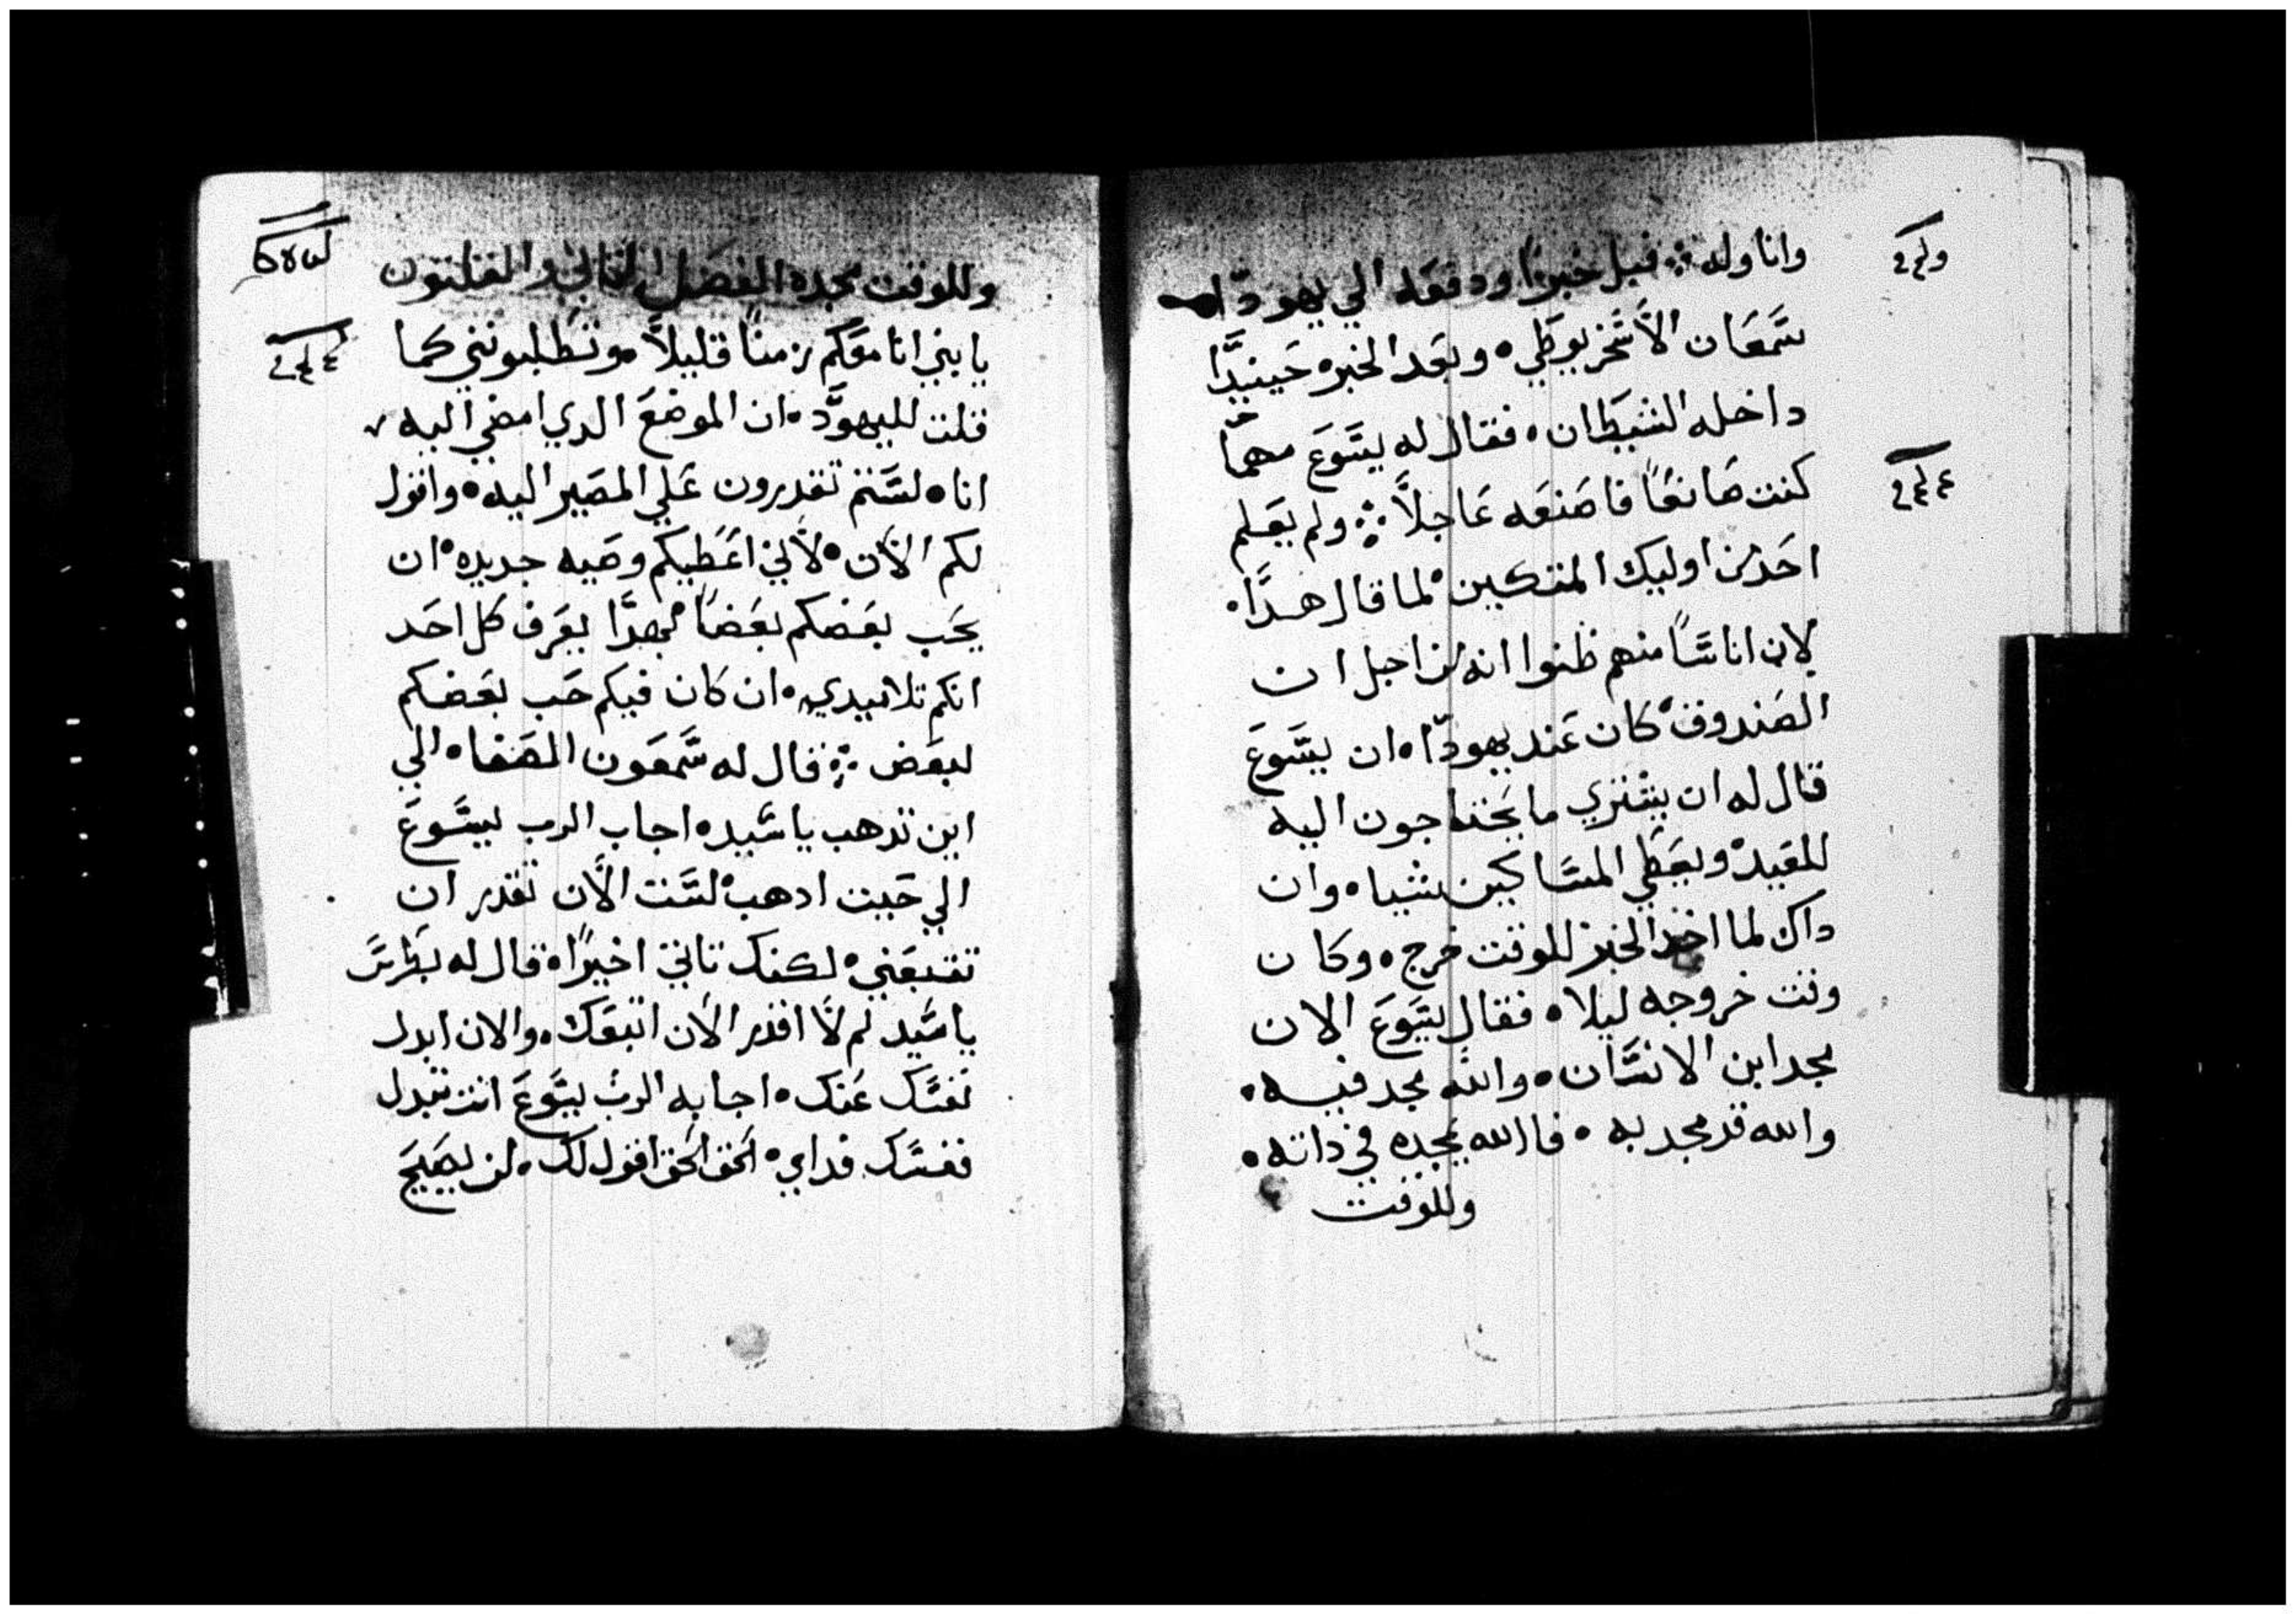 وانا وله ܀ فبل خبزًا ودفعه الي يهودّا
سَمعَان الاَسَّخريوطي ° وبعَد الخبزه حَينيدًّا
داخله الشيطان ، فقال له يسَّوعَ مهما
كنت صَانعًا فاصَنعَه عَاجلاً ܀ ولم يعَلم
احَد من اوليك المتكيين ° لما قال هدَّا ،
لان اناسًّا منهم ظنوا انه من اجل ان
الصَندوق ° كان عَند يهودّا ° ان يسَّوعَ
قال له ان يشتري ما يحَتاجون اليه
للعَيد ° ويعَطي المسَّاكين شيا ° وان
داك لما اخد الخبز للوقت خرج ° وكان
وقت خروجه ليلا ° فقال يسَّوعَ الان
مجد ابن الانسَّان ° والله مجد فيه ،
والله قد مجد به ° فالله يمجده في داته °
وللوقت
وللوقت يمجده الفصَل الثاني والثلتون
يا بني انا معَكم زمنًا قليلاً وتطلبونني كما
قلت لليهودّ ، ان الموضعَ الدي امضي اليه
انا ° لسَّتم تقدرون عَلي المصَير اليه ° واقول
لكم الاَن ° لاَني اعَطيكم وصَيه جديده ° ان
يحَب بعَضكم بعَضًا ° بهدَّا يعَرف كل احَد
انكم تلاميدي ° ان كان فيكم حَب بعَضكم
لبعَض ܀ قال له سَّمعَون الصَفا ° الي
اين تدهب يا سَّيد ° اجاب الرب ليسَّوعَ
الي حَيت ادهب ° لسَّت الاَن تقدر ان
تتبعَني ° لكنك تاتي اخيرًا ° قال له بطرسَّ
يا سَّيد لم لاَ اقدر الاَن اتبعَك . والان ابدل
نفسَّك عَنك ° اجابه الرب يسَّوعَ انت تبدل
نفسَّك فداي ° الحَق الحَق اقول لك ° لن يصَيحَ